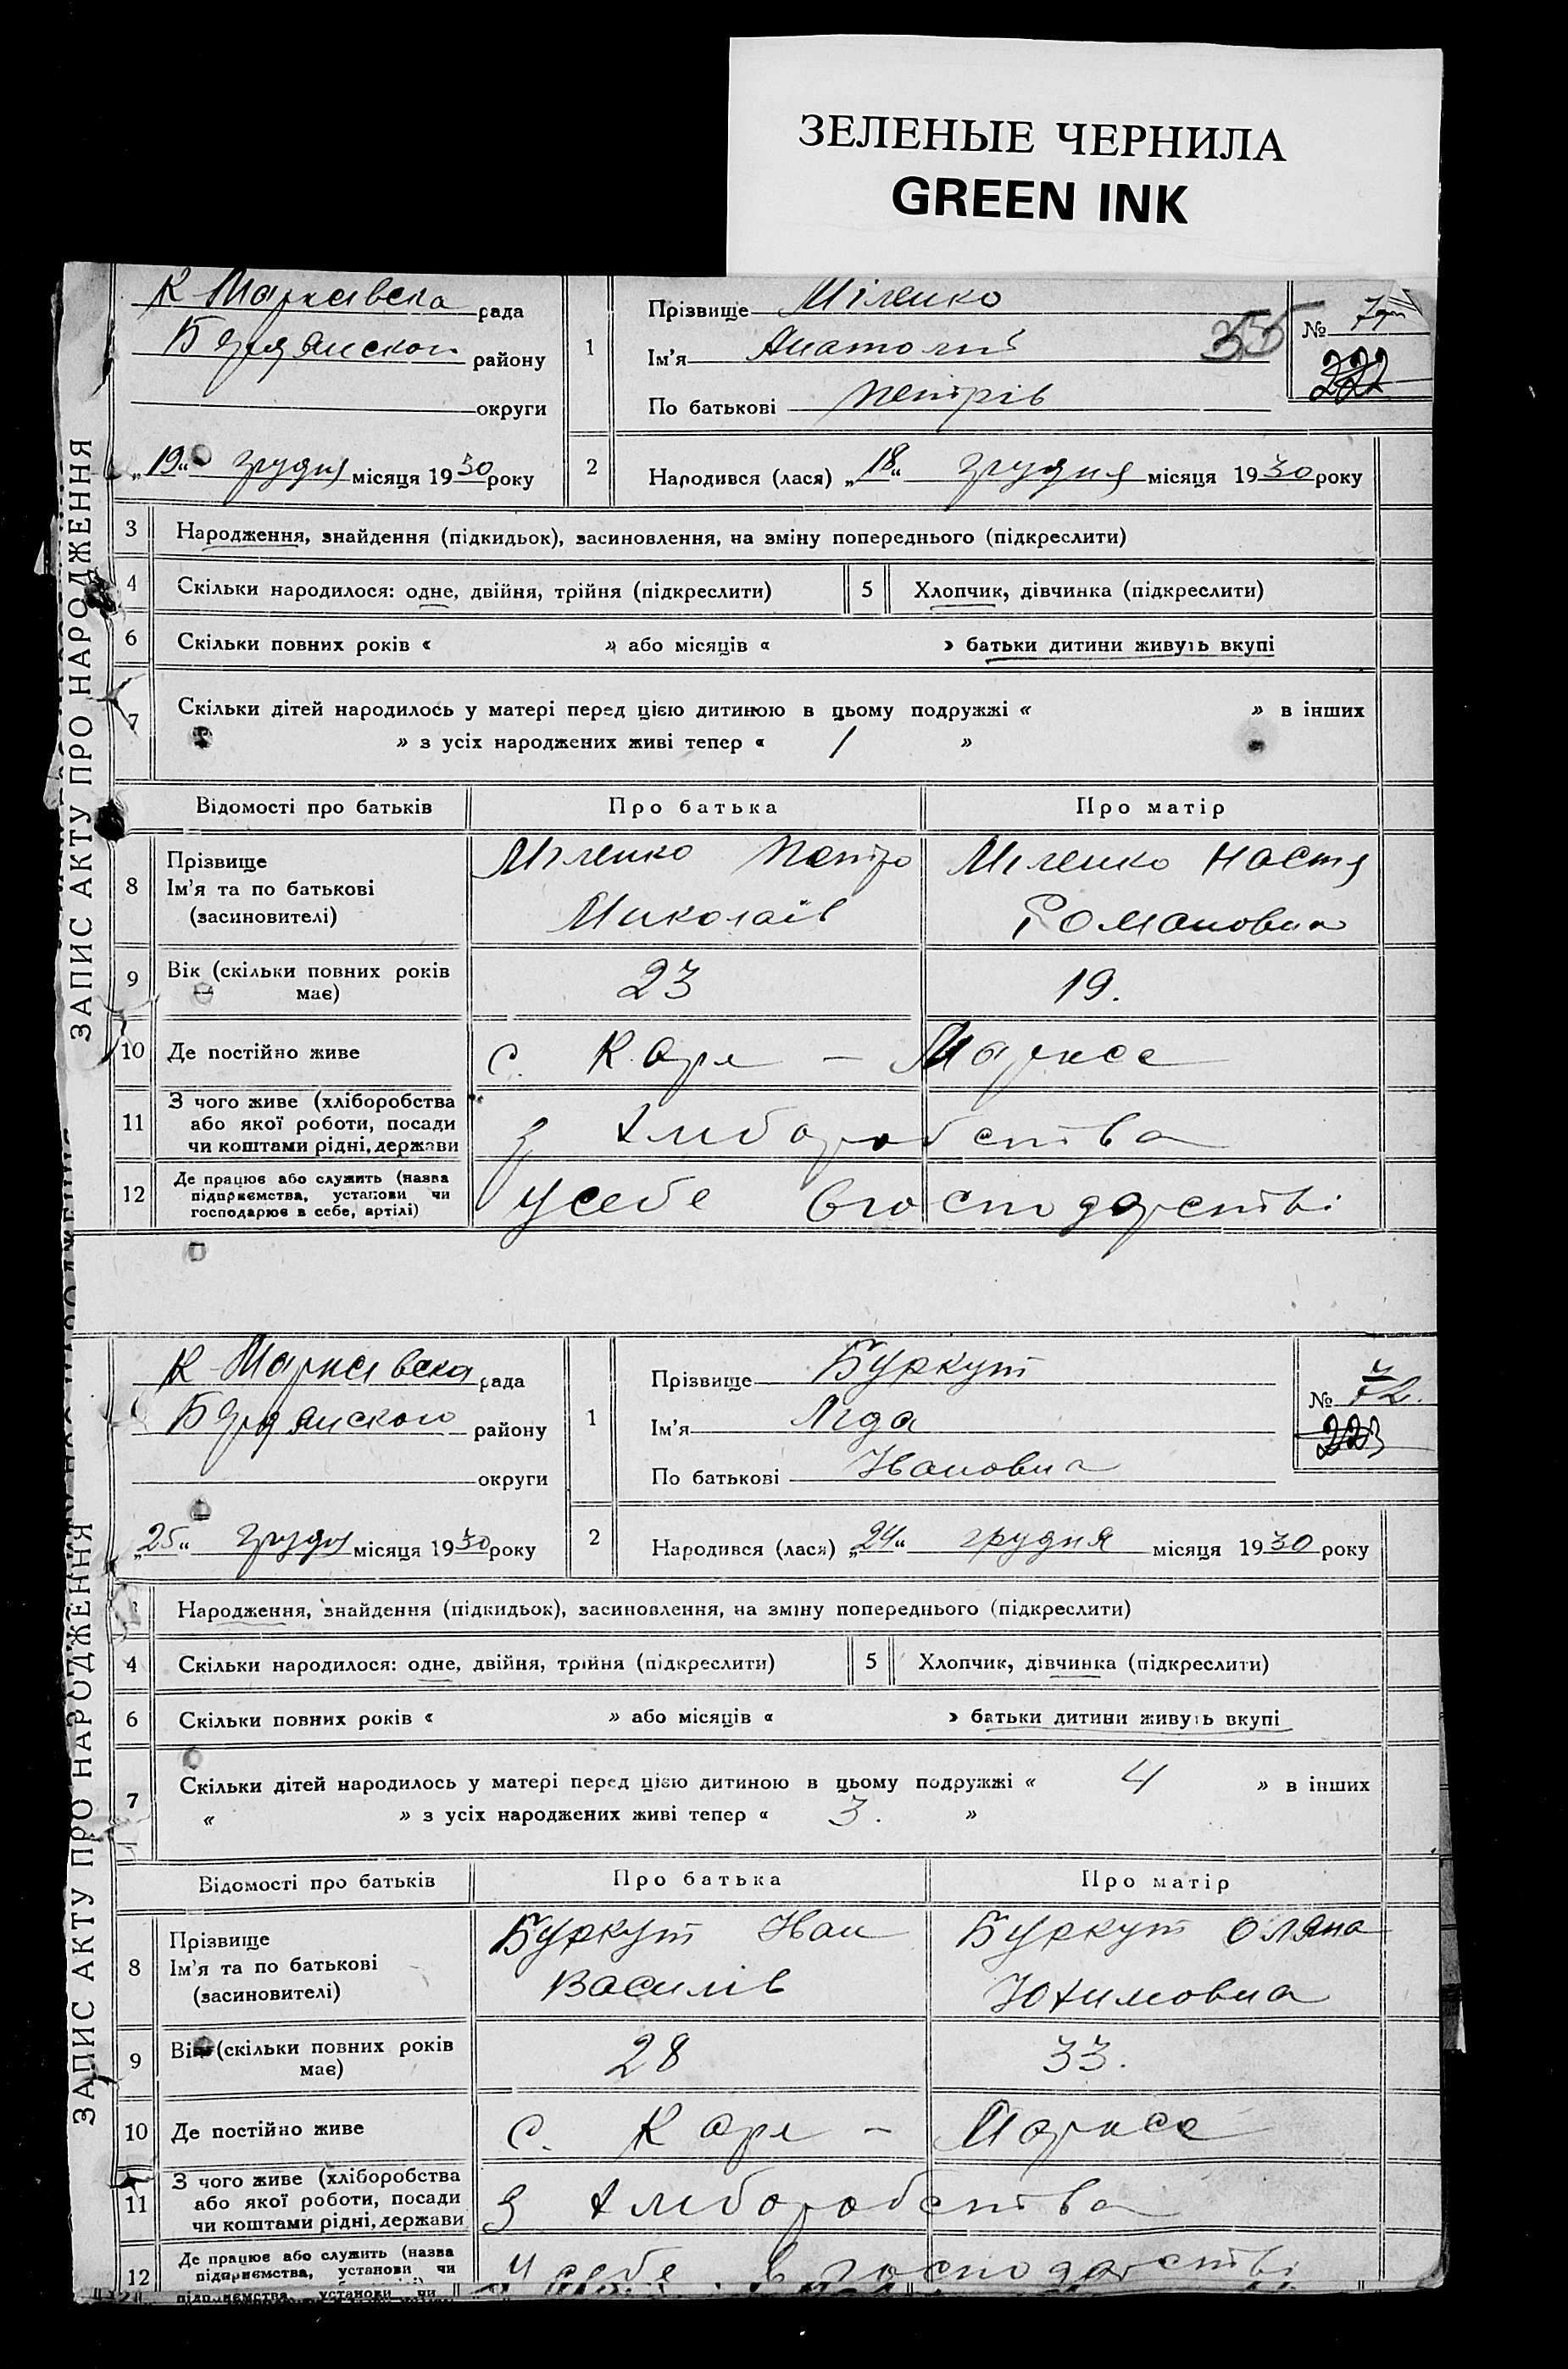 ЗЕЛЕНЫЕ ЧЕРНИЛА
GREEN INK
ЗАПИС АКТУ ПРО НАРОДЖЕННЯ
К Марксівска рада
Бердянскои району
округи
„19“ грудня місяця 1930 року
1
Прізвище Міленко
Ім’я Анатолий
По батькові Петрів
355
№
222
2
Народився (лася) „18“ грудня місяця 1930 року
3 Народження, знайдення (підкидьок), засиновлення, на зміну попереднього (підкреслити)
4 Скільки народилося: одне, двійня, трійня (підкреслити) 5 Хлопчик, дівчинка (підкреслити)
6 Скільки повних років « » або місяців « » батьки дитини живуть вкупі
7 Скільки дітей народилось у матері перед цією дитиною в цьому подружжі « » в інших
» з усіх народжених живі тепер « 1 »
Відомості про батьків Про батька Про матір
8 Прізвище
Ім’я та по батькові
(засиновителі)
Міленко Петро
Миколаів
Міленко Настя
Романовна
9 Вік (скільки повних років
має)
23 19.
10 Де постійно живе с. Карл – Маркса
11 З чого живе (хліборобства
або якої роботи, посади
чи коштами рідні, держави
з хлиборобства
12 Де працює або служить (назва
підприємства, установи чи
господарює в себе, артілі)
у себе в госнодарстві
ЗАПИС АКТУ ПРО НАРОДЖЕННЯ
К Марксівска рада
Бердянскои району
округи
„25“ грудня місяця 1930 року
1
Прізвище Буркут
Ім’я Ліда
По батькові Ивановна
№ 72.
223
2
Народився (лася) „24“ грудня місяця 1930 року
Народження, знайдення (підкидьок), засиновлення, на зміну попереднього (підкреслити)
4 Скільки народилося: одне, двійня, трійня (підкреслити) 5 Хлопчик, дівчинка (підкреслити)
6 Скільки повних років « » або місяців « » батьки дитини живуть вкупі
7 Скільки дітей народилось у матері перед цією дитиною в цьому подружжі « 4 » в інших
« » з усіх народжених живі тепер « 3. »
Відомості про батьків Про батька Про матір
8 Прізвище
Ім’я та по батькові
(засиновителі)
Буркут Иван
Василів
Буркут Оляна
Юхимовна
9 Вік (скільки повних років
має)
28 33.
10 Де постійно живе с. Карл – Маркса
11 З чого живе (хліборобства
або якої роботи, посади
чи коштами рідні, держави
З хлиборобства
12 Де працює або служить (назва
підприємства, установи чи
у себе в господарстві
підприємства, установи чи